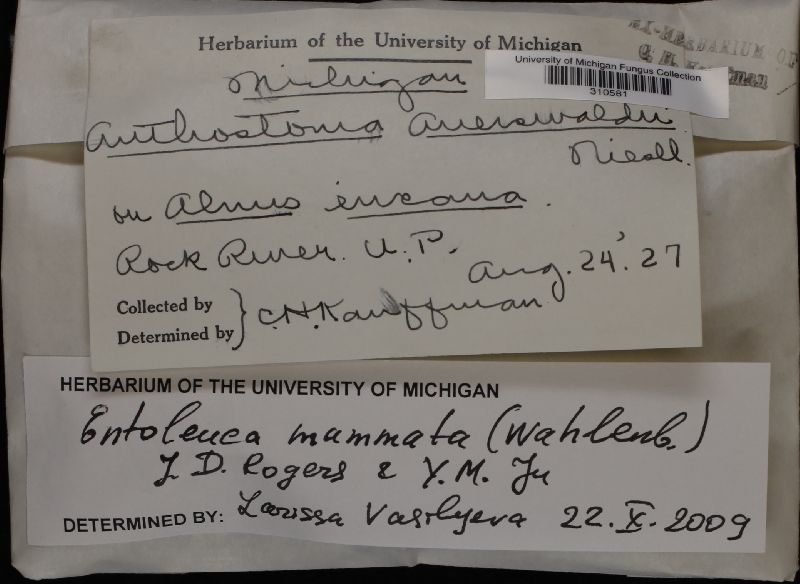 Herbarium of the University of Michigan
EX-HERBARIUM OF
Michigan
University of Michigan Fungus Collection
310581
Anthostoma Auerswaldii
Niessl.
on Alnus incana.
Rock River. U.P.
Aug. 24'. 27
Collected by
Determined by } C.H. Kauffman
HERBARIUM OF THE UNIVERSITY OF MICHIGAN
Entoleuca mammata (Wahlenb.)
J. D. Rogers & Y. M. Ju
DETERMINED BY: Larissa Vasilyeva 22. X. 2009